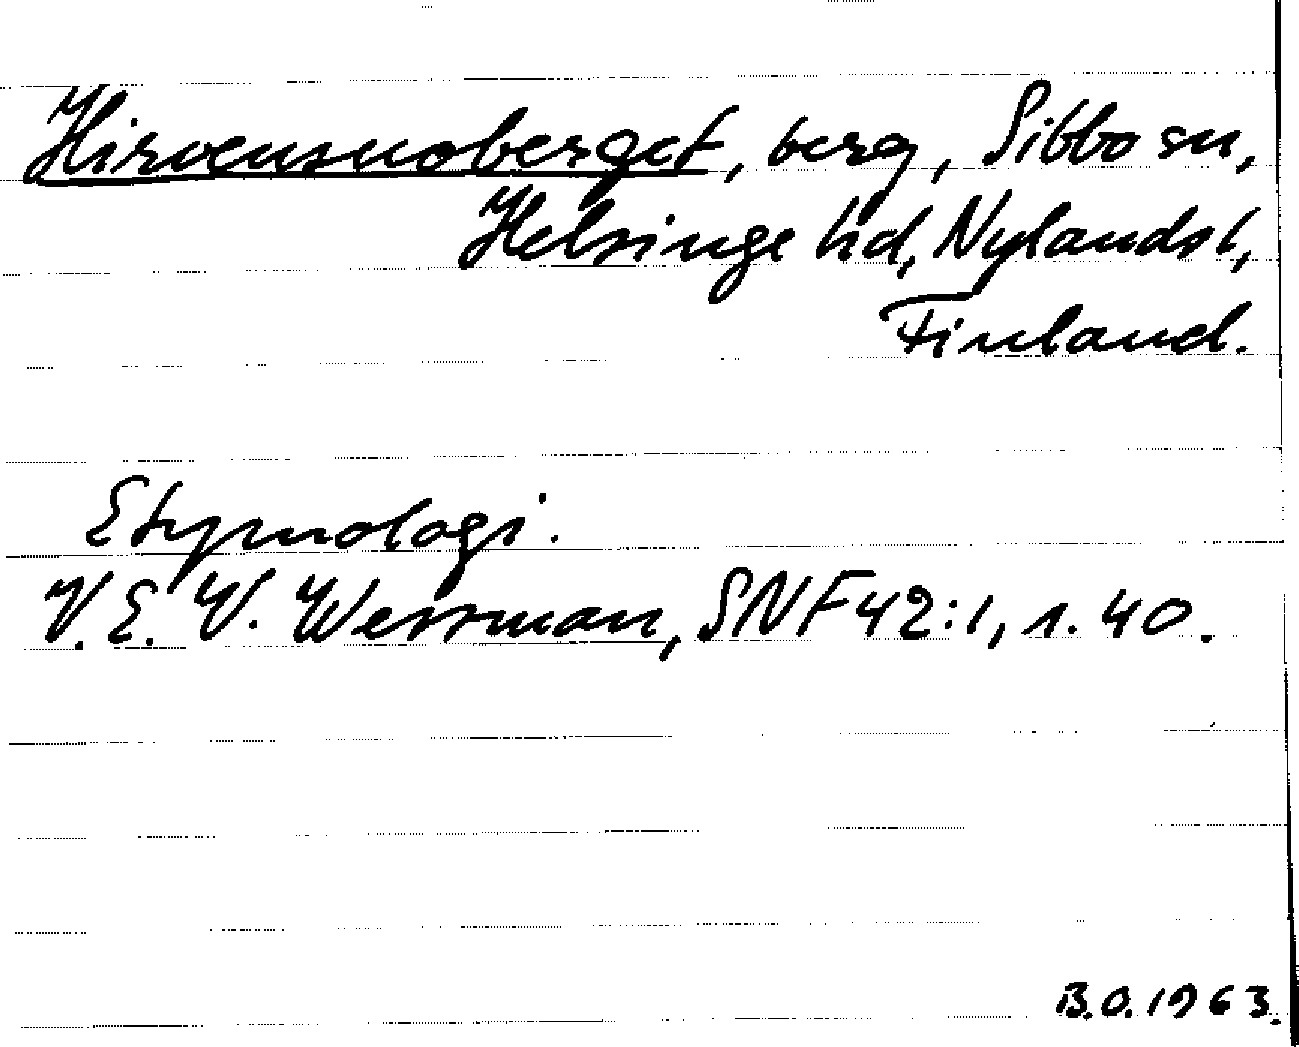 Hirvensuoberget, berg, Sibbo sn,
Helsinge hd, Nylands l,
Finland.
Etymologi.
V. E. V. Wessman, SNF 42:1, s. 40.
B.O. 1963.